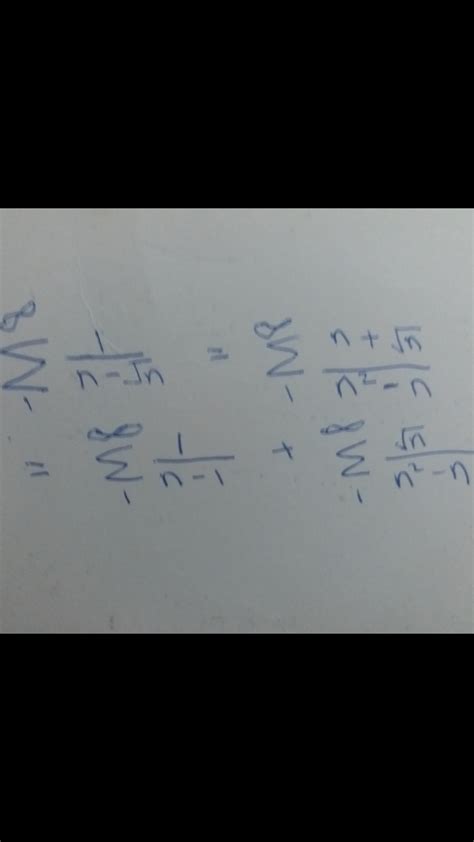 ∑₁^∞ 1/(n-√n) = ∑₁^∞ (n+√n)/(n²-n)
= ∑₁^∞ 1/(n-1) + ∑₁^∞ √n/(n²-n)